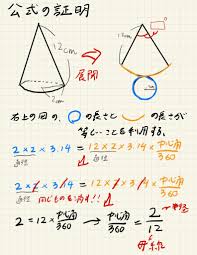 公式の証明
12cm
2cm
展開
12cm
2cm
右上の図の、○の長さと⌣の長さが
等しいことを利用する。
2×2×3.14 = 12×2×3.14×中心角/360
直径 直径
2×2×3.14 = 12×2×3.14×中心角/360
直径 同じものを消す!! 直径
2=12×中心角/360 → 中心角/360 = 2/12
半径
母線